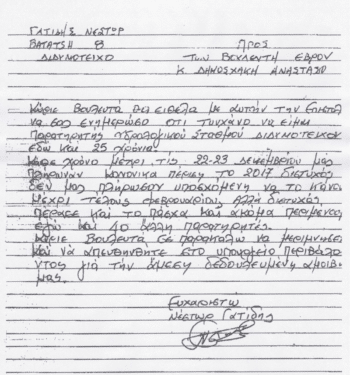 ΓΑΤΙΔΗΣ ΝΕΣΤΩΡ
ΒΑΤΑΤΣΗ 8
ΔΙΔΥΜΟΤΕΙΧΟ
ΠΡΟΣ
ΤΩΝ ΒΟΥΛΕΥΤΗ ΕΒΡΟΥ
Κ ΔΗΜΟΣΧΑΚΗ ΑΝΑΣΤΑΣΙΟ
Κύριε Βουλευτά θα ειθελα με αυτήν την Επιστολ
να σας ενημερώσο οτι τυνχάνο να είμαι
Παρατηρητής Υδρολογικού Σταθμού ΔΙΔΥΜΟΤΕΙΧΟΥ
εδώ και 25 χρόνια.
Κάθε χρόνο μέχρι τις 22-23 Δεκεμβρίου μας
πλήρωναν κανονικα πέρυσι το 2017 διστυχώς
δεν μας πλήρωσαν υποσχόμενη να το κάνου
μέχρι τέλους φεβρουαρίου, αλλά διστυχώς
πέρασε και το πάσχα και ακόμα περιμένω
εγώ και 40 άλλη παρατηρητές.
Κύριε Βουλευτά σε παρακαλώ να μεριμνησει
και να απευθηνθητε στο υπουργείο περιβάλο
ντος για την άμεση δεδουλευμένη αμοιβ
μας.
Ευχαριστώ
Νέστωρ Γατίδης